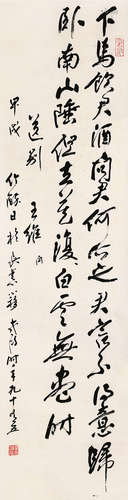 下馬飲君酒问君何所之君言不得意歸
卧南山陲但去莫復白雲無盡时
送别 王維诗
甲戌
时年九十